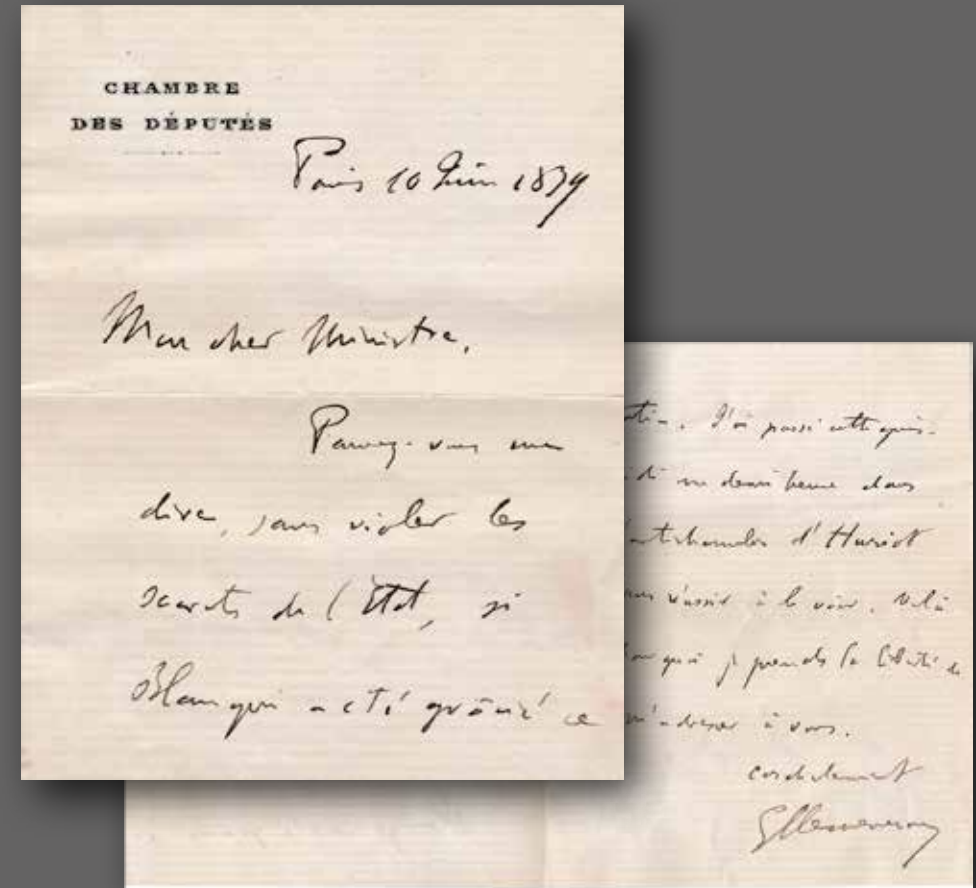 CHAMBRE
DES DÉPUTÉS
Paris 10 Juin 1879
Mon cher Ministre,
Pouvez-vous me
dire, sans violer les
secrets de l'État, si
Blanqui a été grâcié ce
tin. J'ai passé cette après-
di une demi heure dans
antichambre d'Hérisson
sans réussir à le voir. Voilà
pourquoi je prends la liberté de
m'adresser à vous.
cordialement
GClemenceau